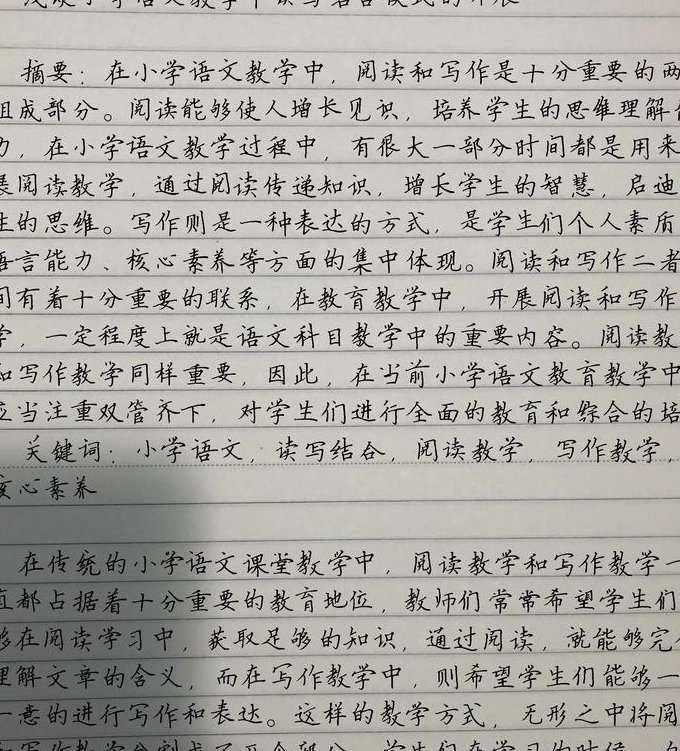 浅谈小学语文教学中读写结合模式的开展
摘要：在小学语文教学中，阅读和写作是十分重要的两
组成部分。阅读能够使人增长见识，培养学生的思维理解
力，在小学语文教学过程中，有很大一部分时间都是用来
展阅读教学，通过阅读传递知识，增长学生的智慧，启迪
生的思维。写作则是一种表达的方式，是学生们个人素质
语言能力、核心素养等方面的集中体现。阅读和写作二者
间有着十分重要的联系，在教育教学中，开展阅读和写作
学，一定程度上就是语文科目教学中的重要内容。阅读教
和写作教学同样重要，因此，在当前小学语文教育教学中
应当注重双管齐下，对学生们进行全面的教育和综合的培
关键词：小学语文，读写结合，阅读教学，写作教学，
核心素养
在传统的小学语文课堂教学中，阅读教学和写作教学一
直都占据着十分重要的教育地位，教师们常常希望学生们
够在阅读学习中，获取足够的知识，通过阅读，就能够完
理解文章的含义，而在写作教学中，则希望学生们能够一
一意的进行写作和表达。这样的教学方式，无形之中将阅
和写作教学分割成了两个部分，学生们在学习的时候，